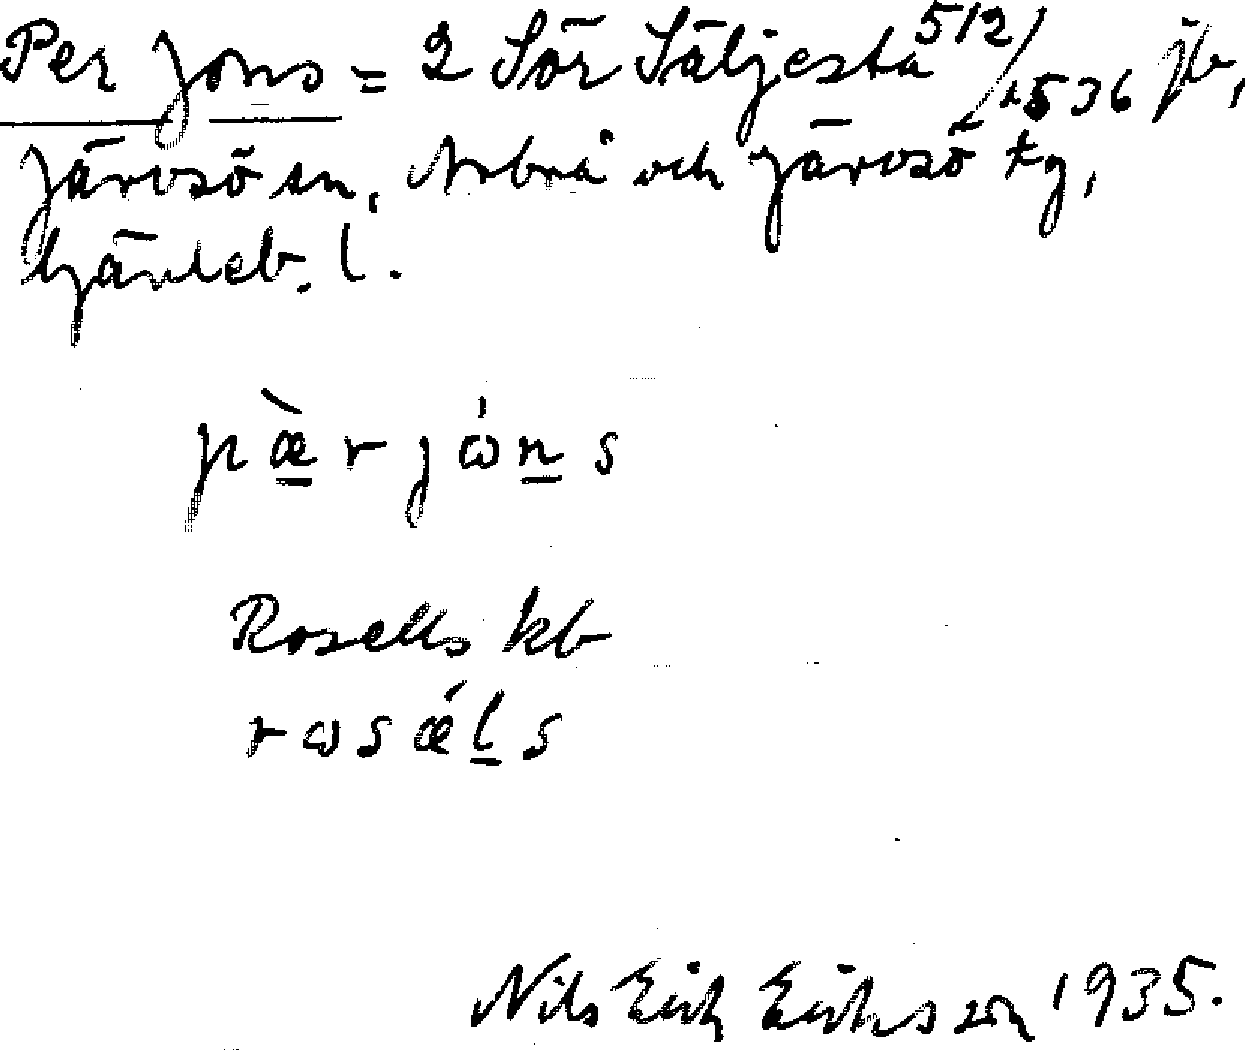 Per Jons = 2 Sör Säljesta 512/1536 jb,
Järvsö sn, Arbrå och Järvsö tg,
Gävleb. l.
pæ̀rjώns
Rosells kb
rωsǽls
Nils Erik Eriksson 1935.